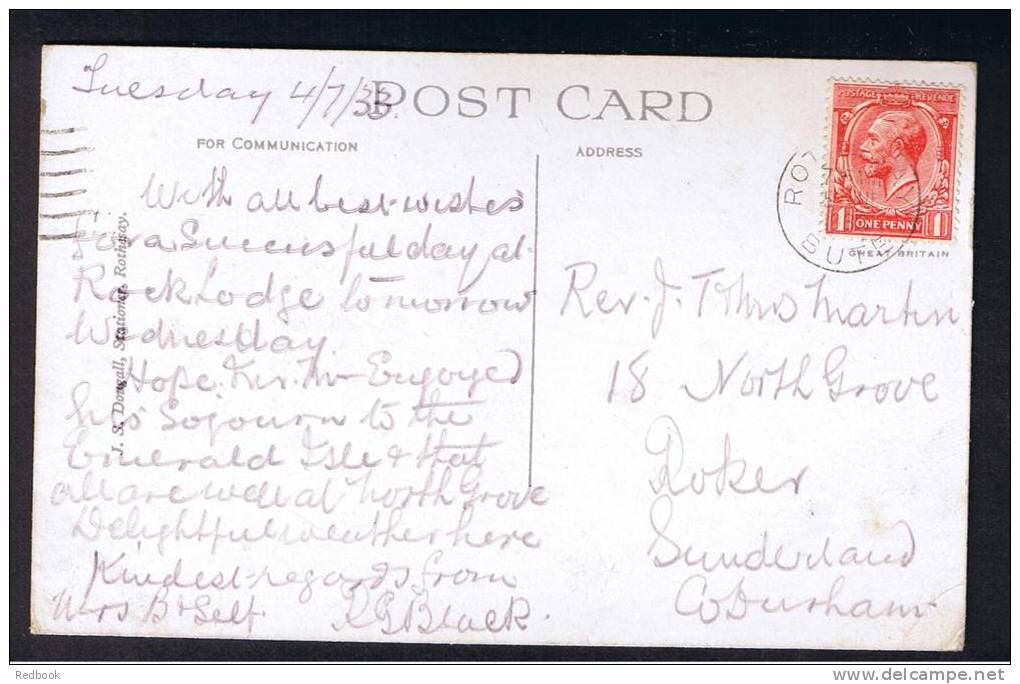 Tuesday 4/7/33.
POST CARD
FOR COMMUNICATION
ADDRESS
With all best wishes
for a Successful day at
Rock Lodge tomorrow
Wednesday
Hope Enjoyed
his Sojourn to the
Emerald Isle & that
all are well at North Grove
Delightful weather here
Kindest regards from
Mrs B & Self. Black.
J. S. Dougall, Stationer, Rothesay.
POSTAGE REVENUE
1 ONE PENNY 1
GREAT BRITAIN
BUTE
Rev. J. T & Mrs Martin
18 North Grove
Roker
Sunderland
Co Durham
Redbook
delcampe.net